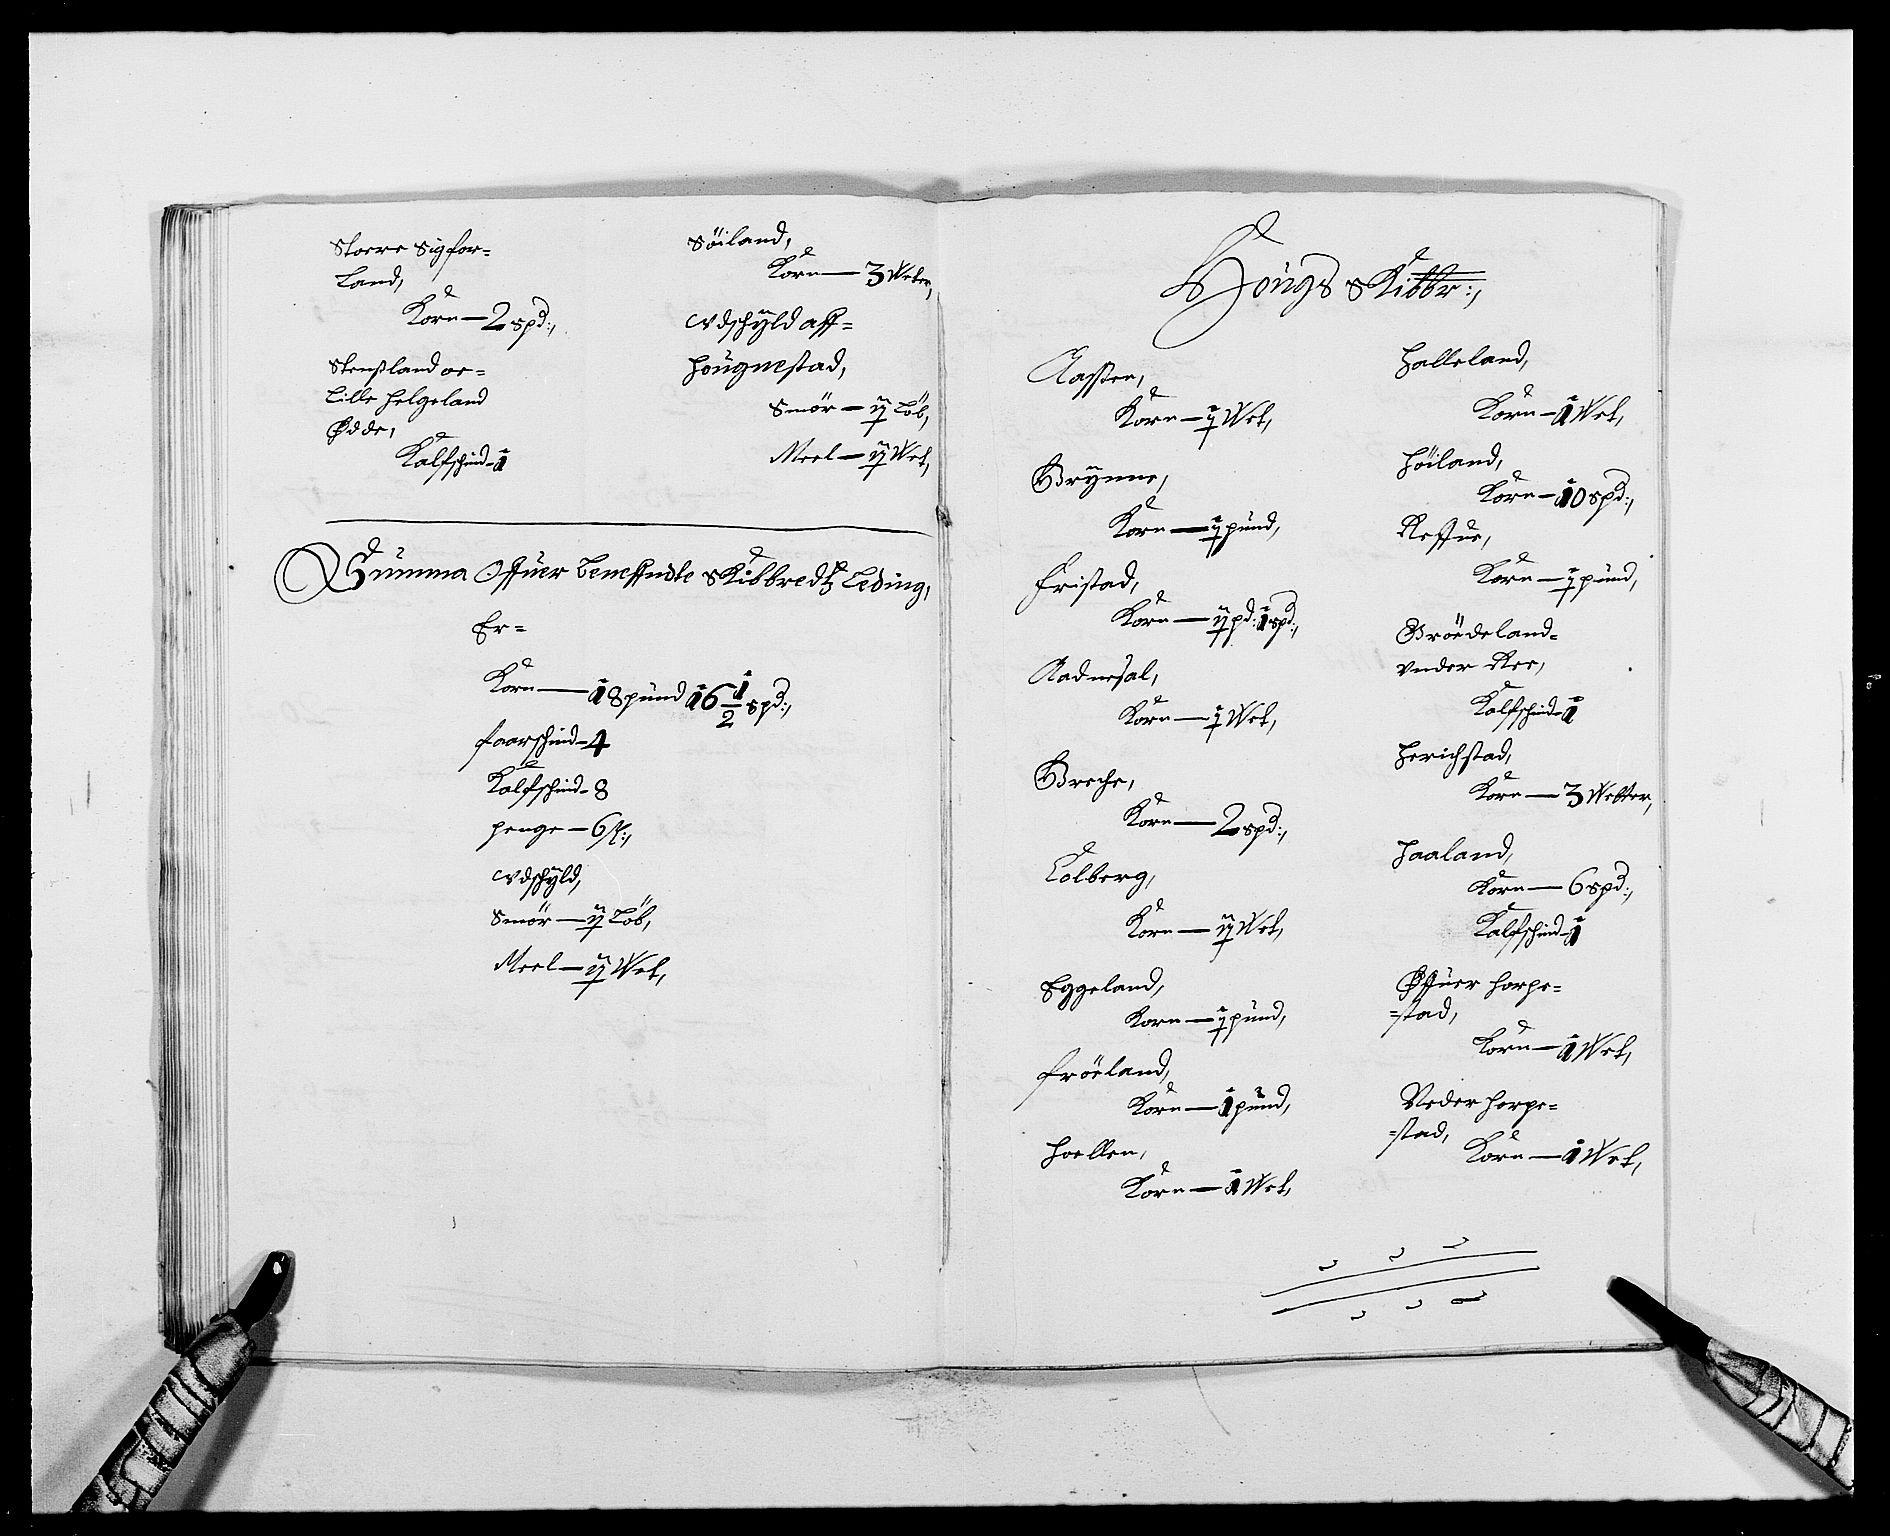 Stoere Sigfor=
Land,
Korn — 2 spd:,
Stenßland oc=
Lille Helgeland
Ødde,
Kalfschind - 1
Söiland,
Korn — 3 Weter,
Vdschÿld aff=
Höugnestad,
Smör — ij Löb,
Meel — ij Wet,
Summa Offuer beneffndte Skibbredtz Leding,
Er=
Korn — 18 pund 16 1/2 spd:,
faarschind - 4
Kalfschind - 8
penge — 6 ß:,
Vdschÿld,
Smör — ij Löb,
Meel — ij Wet,
Höugs Skibbr:,
Aassen,
Korn — j Wet,
Brÿnne,
Korn — j pund,
Fristad,
Korn — ij pd: 1 spd:,
Aadnesal,
Korn — j Wet,
Breche,
Korn — 2 spd:,
Lolberg,
Korn — ij Wet,
Eggeland,
Korn — j pund,
fröeland,
Korn — 1 pund,
Hoellen,
Korn — 1 Wet,
Halleland,
Korn — 1 Wet,
Höiland,
Korn — 10 spd:,
Reffue,
Korn — j pund,
Bröedeland=
vnder Ree,
Kalfschind - 1
Herichstad,
Korn — 3 Wetter,
Haaland,
Korn — 6 spd:,
Kalfschind - 1
Øffuer Horpe=
=stad,
Korn — 1 Wet,
Neder Horpe=
=stad,
Korn — 1 Wet,